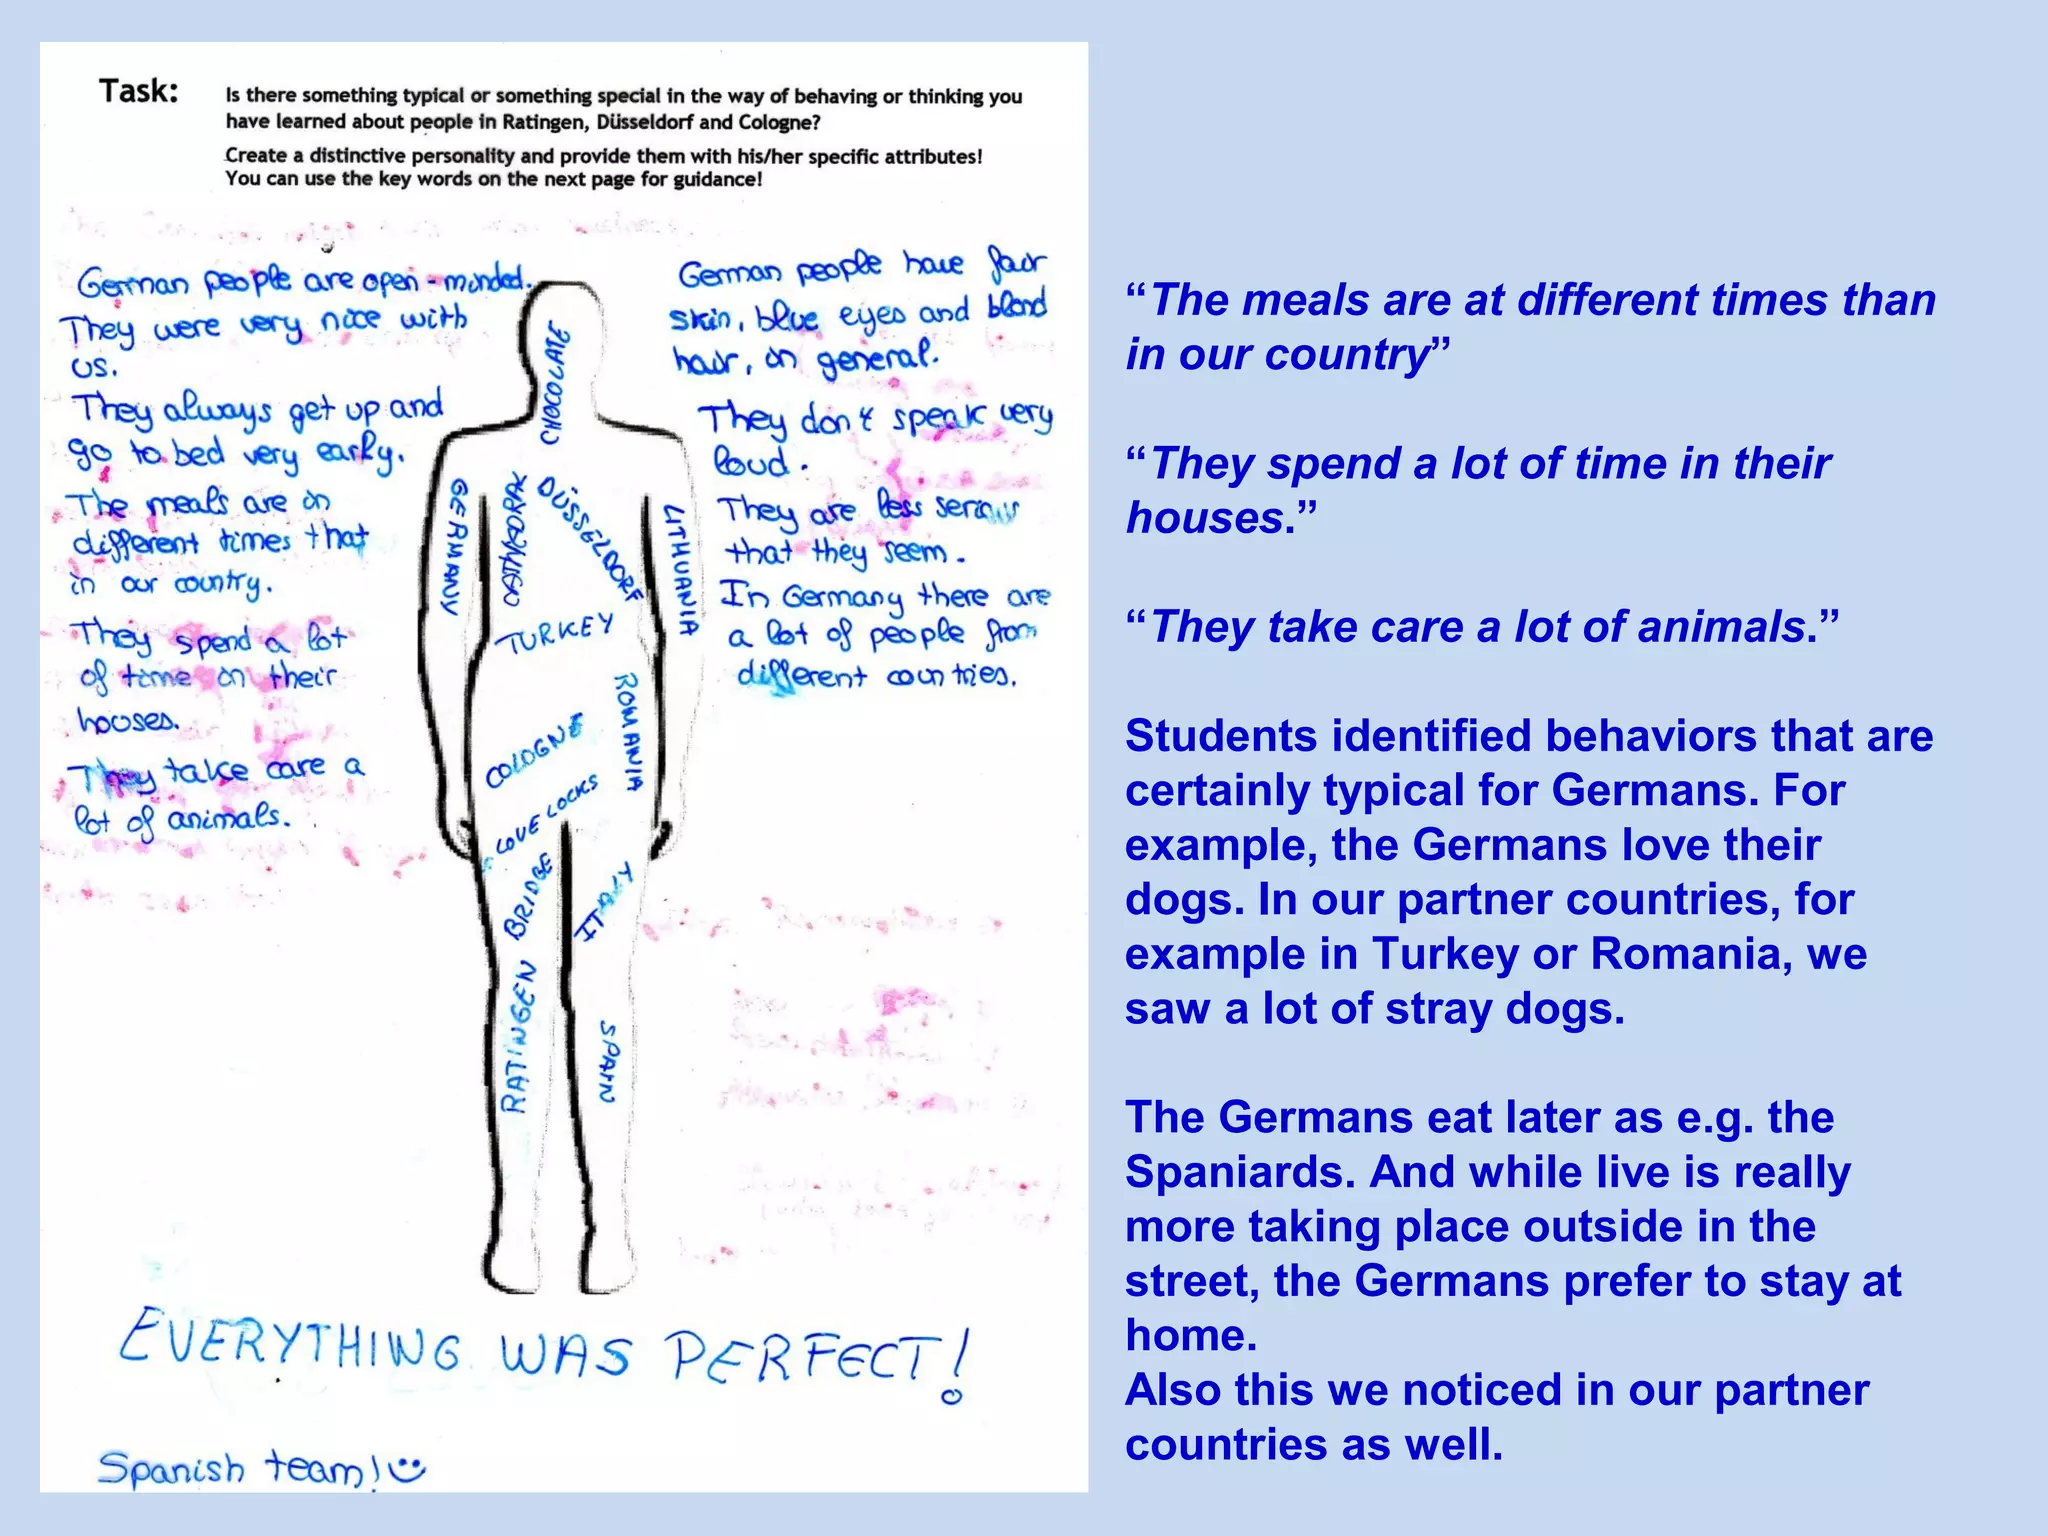 Task:
Is there something typical or something special in the way of behaving or thinking you
have learned about people in Ratingen, Düsseldorf and Cologne?
Create a distinctive personality and provide them with his/her specific attributes!
You can use the key words on the next page for guidance!
German people are open-minded.
They were very nice with
us.
They always get up and
go to bed very early.
The meals are in
different times that
in our country.
They spend a lot
of time in their
houses.
They take care a
lot of animals.
CHOCOLATE
GERMANY
DÜSSELDORF
LITHUANIA
TURKEY
ROMANIA
COLOGNE
LOVE LOCKS
BRIDGE
ITALY
RATINGEN
SPAIN
German people have fair
skin, blue eyes and blond
hair, in general.
They don't speak very
loud.
They are less serious
that they seem.
In Germany there are
a lot of people from
different countries.
EVERYTHING WAS PERFECT!
Spanish team!
“The meals are at different times than
in our country”
“They spend a lot of time in their
houses.”
“They take care a lot of animals.”
Students identified behaviors that are
certainly typical for Germans. For
example, the Germans love their
dogs. In our partner countries, for
example in Turkey or Romania, we
saw a lot of stray dogs.
The Germans eat later as e.g. the
Spaniards. And while live is really
more taking place outside in the
street, the Germans prefer to stay at
home.
Also this we noticed in our partner
countries as well.